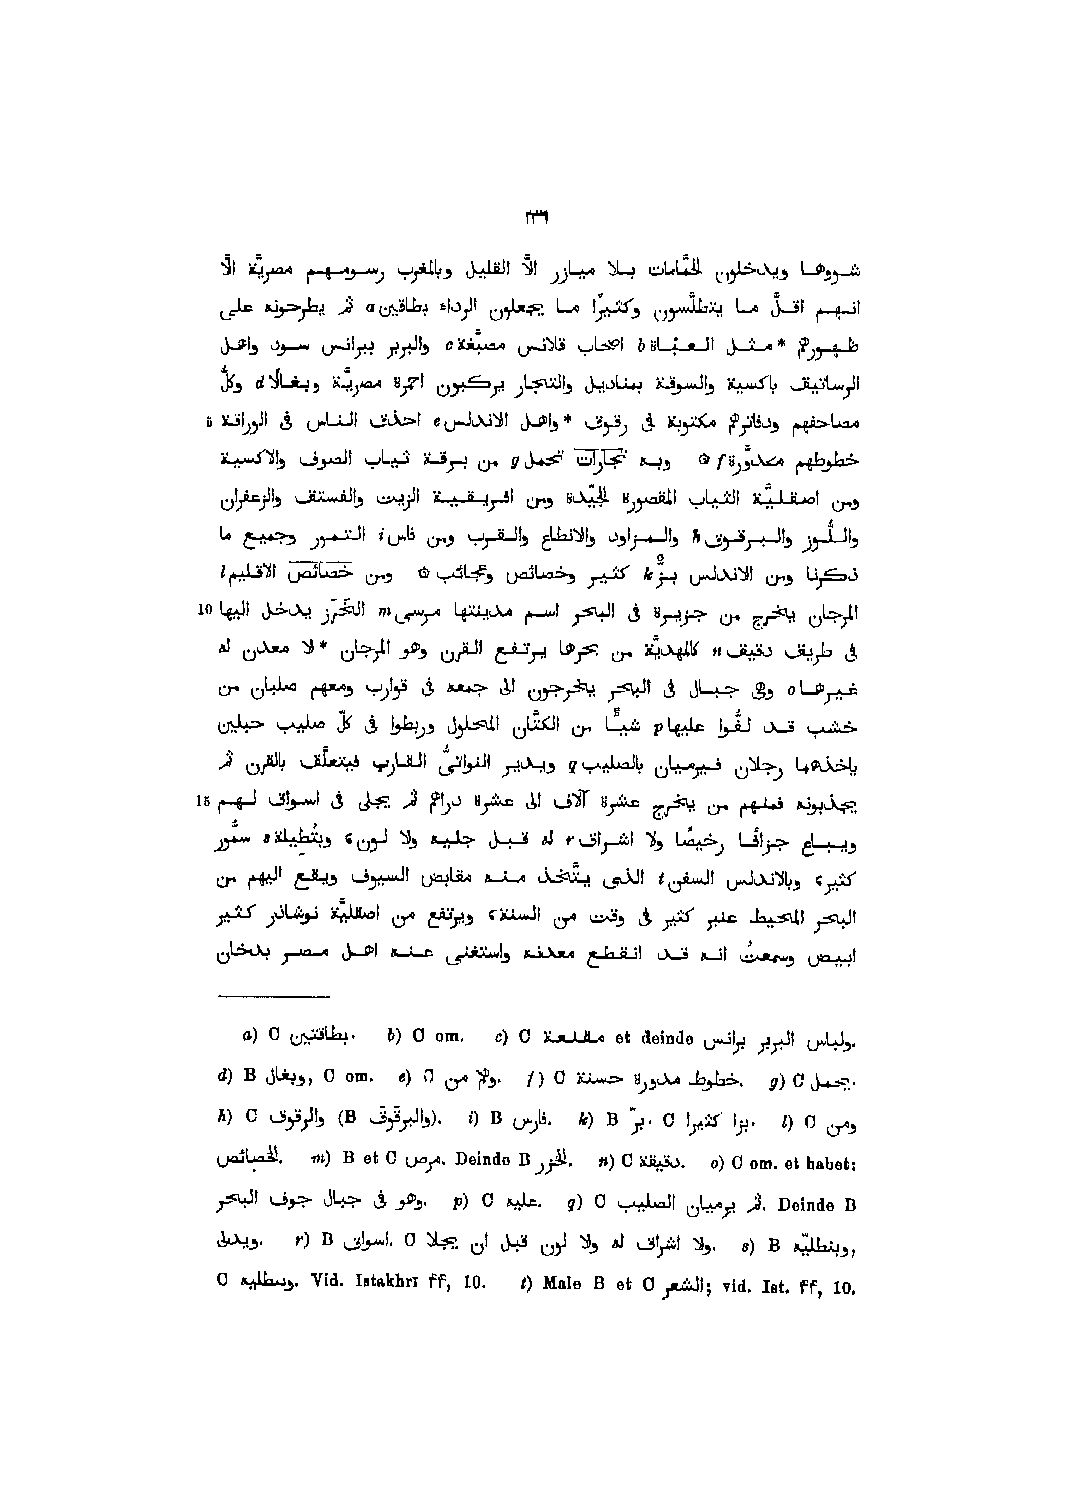 ٢٣٩
شووها ويدخلون الحمّامات بلا ميازر الّا القليل وبالمغرب رسومهم مصريّة الّا
انهم اقلّ ما يتطلّسون وكثيرًا ما يجعلون الرداء بطاقين a ثم يطرحونه على
ظهورهم * مثل العباة b اصحاب قلانس مصبّغة c والبربر ببرانس سود واهل
الرساتيق باكسية والسوقة بمناديل والتجار يركبون احمرة مصريّة وبغالًا d وكلّ
مصاحفهم ودفاترهم مكتوبة فى رقوق * واهل الاندلس e احذق الناس فى الوراقة 5
خطوطهم مدوّرة f ۞ وبه تجارات تحمل g من برقة ثياب الصوف والاكسية
ومن اصقليّة الثياب المقصورة الجيّدة ومن افريقية الزيت والفستق والزعفران
واللّوز والبرقوق h والمزاود والانطاع والقرب ومن فاس i التمور وجميع ما
ذكرنا ومن الاندلس بزّ k كثير وخصائص وعجائب ۞ ومن خصائص الاقليم l
المرجان يخرج من جزيرة فى البحر اسم مدينتها مرسى m الخَرَز يدخل اليها 10
فى طريق دقيق n كالمهديّة من بحرها يرتفع القرن وهو المرجان * لا معدن له
غيرها o وهى جبال فى البحر يخرجون الى جمعه فى قوارب ومعهم صلبان من
خشب قد لفّوا عليها p شيئًا من الكتّان المحلول وربطوا فى كلّ صليب حبلين
ياخذهما رجلان فيرميان بالصليب q ويدير النواتىُّ القارب فيتعلّق بالقرن ثم
يجذبونه فمنهم من يخرج عشرة آلاف الى عشرة دراهم ثم يجلى فى اسواق لهم 15
ويباع جزافًا رخيصًا ولا اشراق r له قبل جليه ولا لون، وبتُطيلة s سمّور
كثير، وبالاندلس السفن t الذى يتّخذ منه مقابض السيوف ويقع اليهم من
البحر المحيط عنبر كثير فى وقت من السنة، ويرتفع من اصقليّة نوشادر كثير
ابيض وسمعتُ انه قد انقطع معدنه واستغنى عنه اهل مصر بدخان
a) C بطاقتين. b) C om. c) C مقلعة et deinde ولباس البربر برانس.
d) B وبغال, C om. e) C ولا من. f) C خطوط مدورة حسنة. g) C يحمل.
h) C والرقوق (B والبرقوق). i) B فارس. k) B برّ. C بزا كثيرا. l) C ومن
الخصائص. m) B et C مرص. Deinde B الخزر. n) C دقيقة. o) C om. et habet:
وهو فى جبال جوف البحر. p) C عليه. q) C ثم يرميان الصليب. Deinde B
ويدلى. r) B اسواق. C ولا اشراق له ولا لون قبل ان يجلا. s) B وبنطليّه,
C وبنطليه. Vid. Istakhrī ۴۴, 10. t) Male B et C الشعر; vid. Ist. ۴۴, 10.